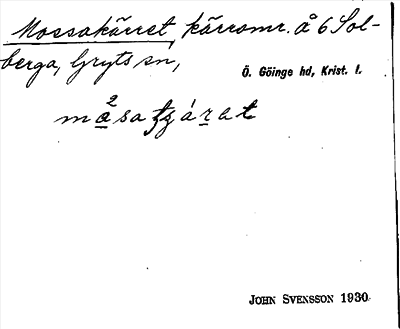 Mossakärret, kärromr. å 6 Sol-
berga, Gryts sn,
Ö. Göinge hd, Krist. l.
JOHN SVENSSON 1930.